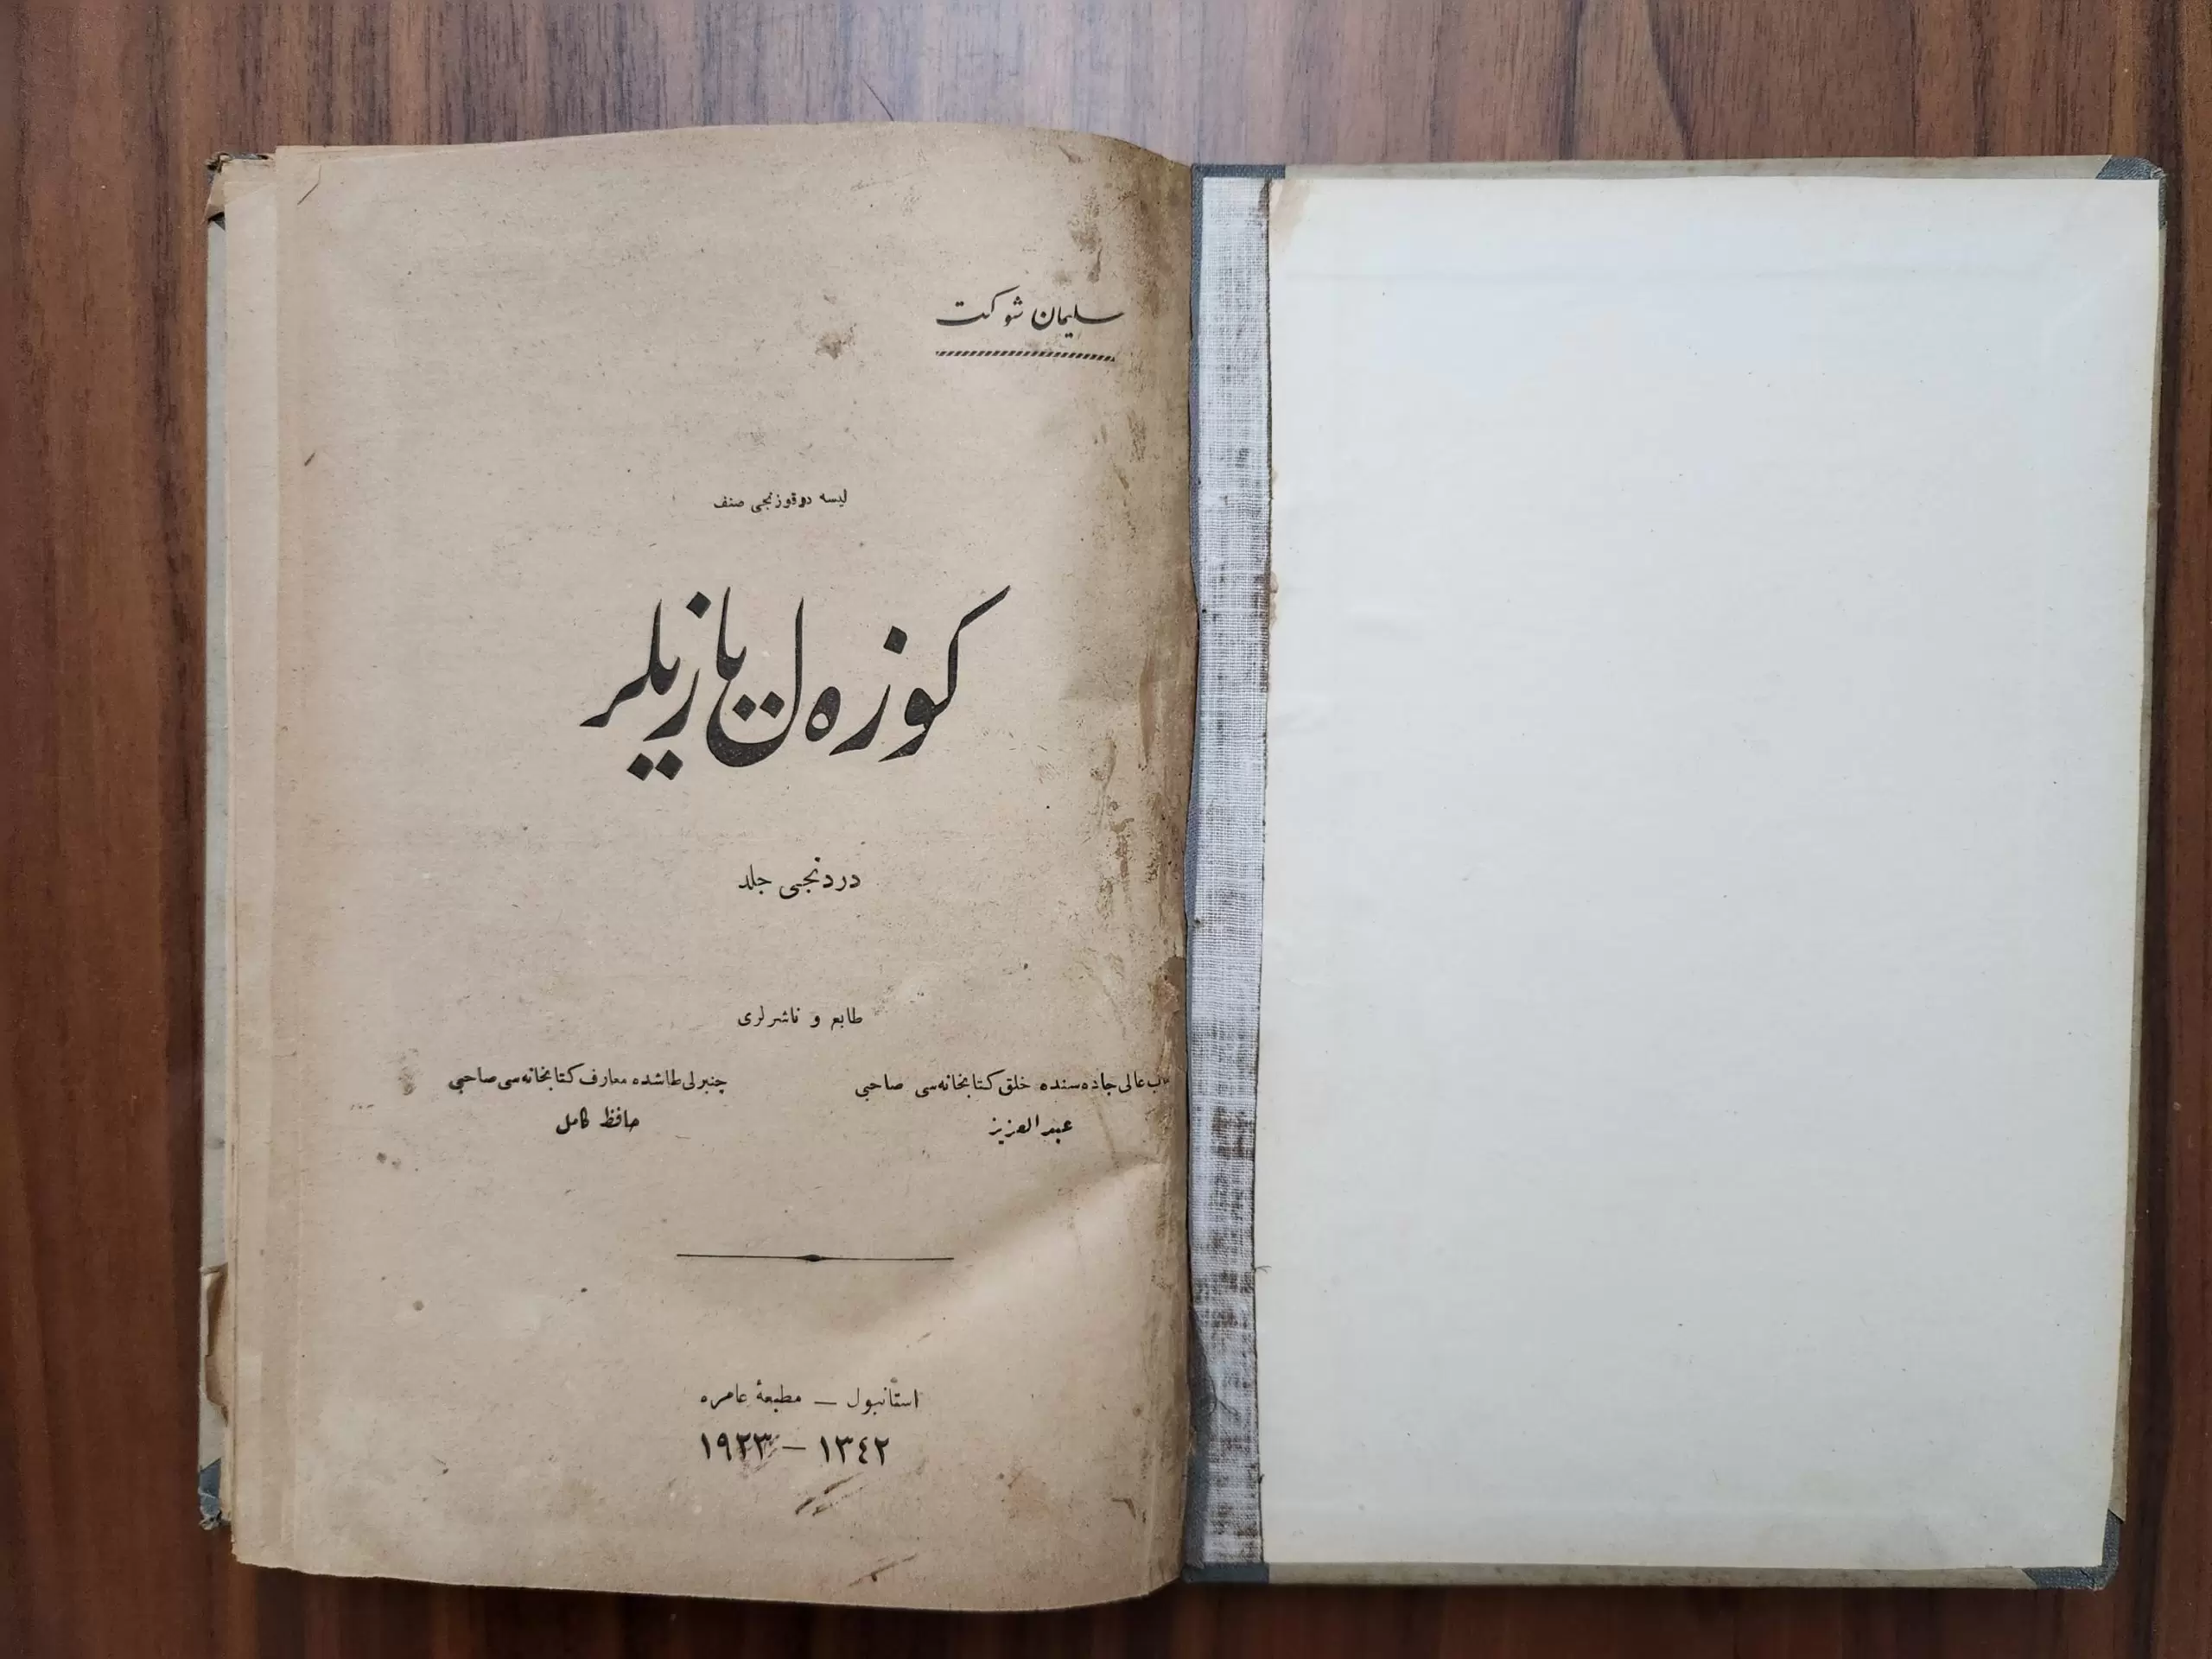 سلیمان شوکت
لیسه دوقوزنجی صنف
کوزه‌ل یازیلر
دردنجی جلد
طابع و ناشرلری
باب عالی جاده‌سنده خلق کتابخانه‌سی صاحبی
عبدالعزیز
چنبرلی طاشده معارف کتابخانه‌سی صاحبی
حافظ کامل
استانبول — مطبعۀ عامره
١٣٤٢ — ١٩٢٣